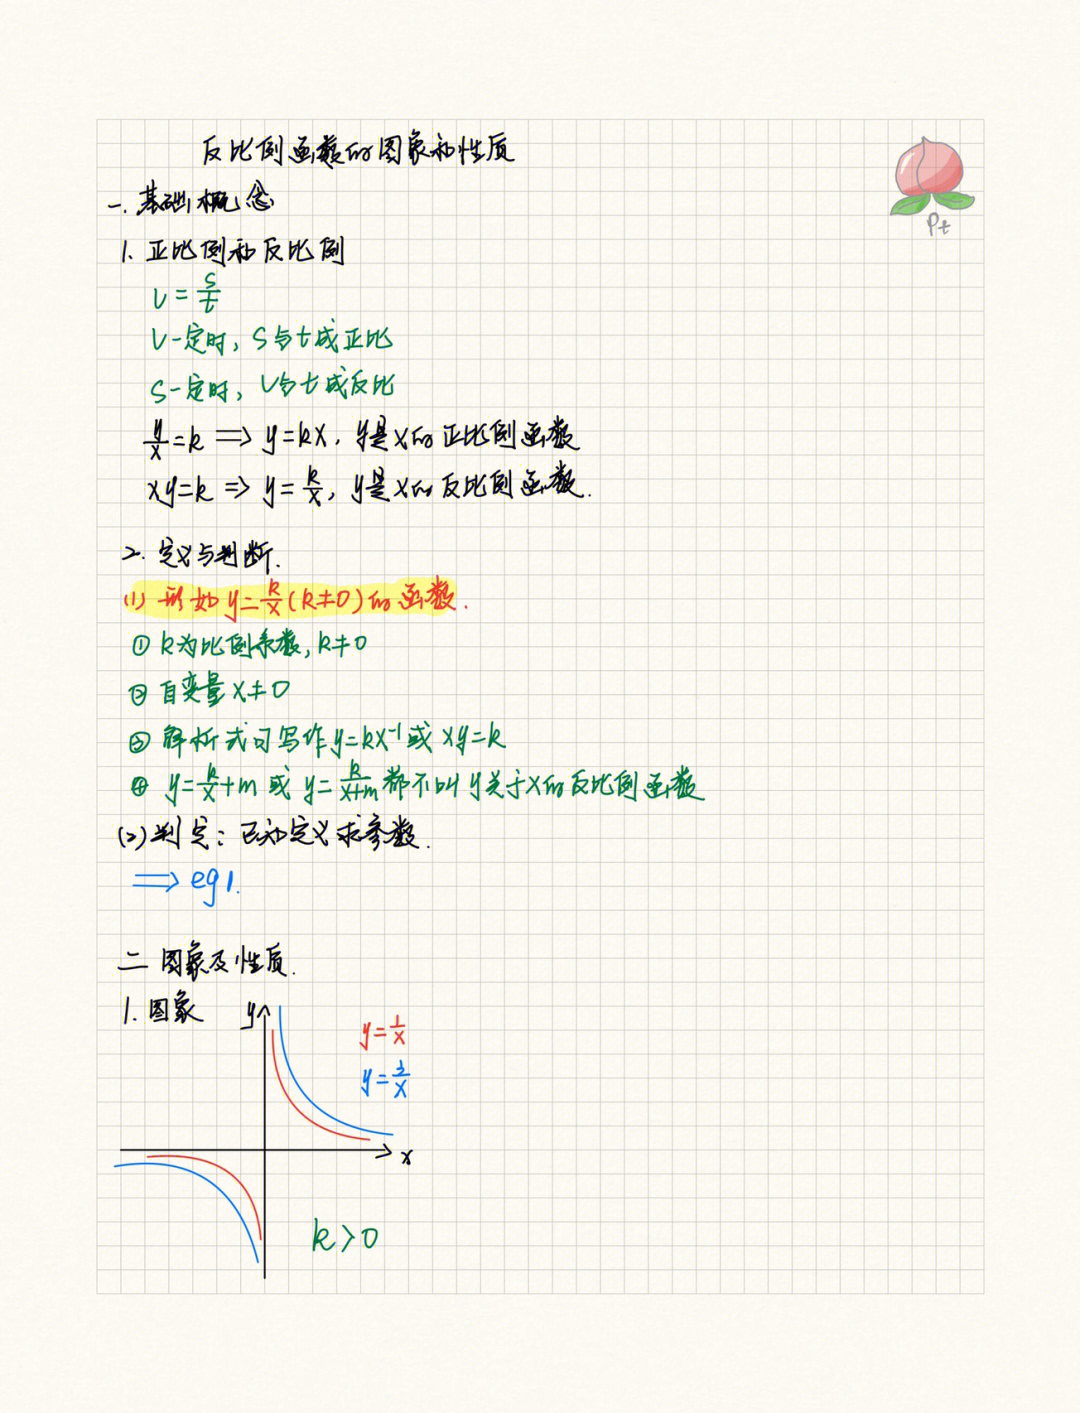 反比例函数的图象和性质
一. 基础概念
Pt
1. 正比例和反比例
V = s/t
V一定时, S与t成正比
S一定时, V与t成反比
y/x = k ⟹ y = kx, y是x的正比例函数
xy = k ⟹ y = k/x, y是x的反比例函数.
2. 定义与判断.
(1) 形如 y = k/x (k≠0) 的函数.
① k为比例系数, k≠0
② 自变量 x≠0
③ 解析式可写作 y=kx⁻¹ 或 xy=k
④ y = k/x + m 或 y = k/(x+m) 都不叫y关于x的反比例函数
(2) 判定: 已知定义求参数.
⟹ eg1.
二 图象及性质.
1. 图象
y
y = 1/x
y = 3/x
x
k > 0